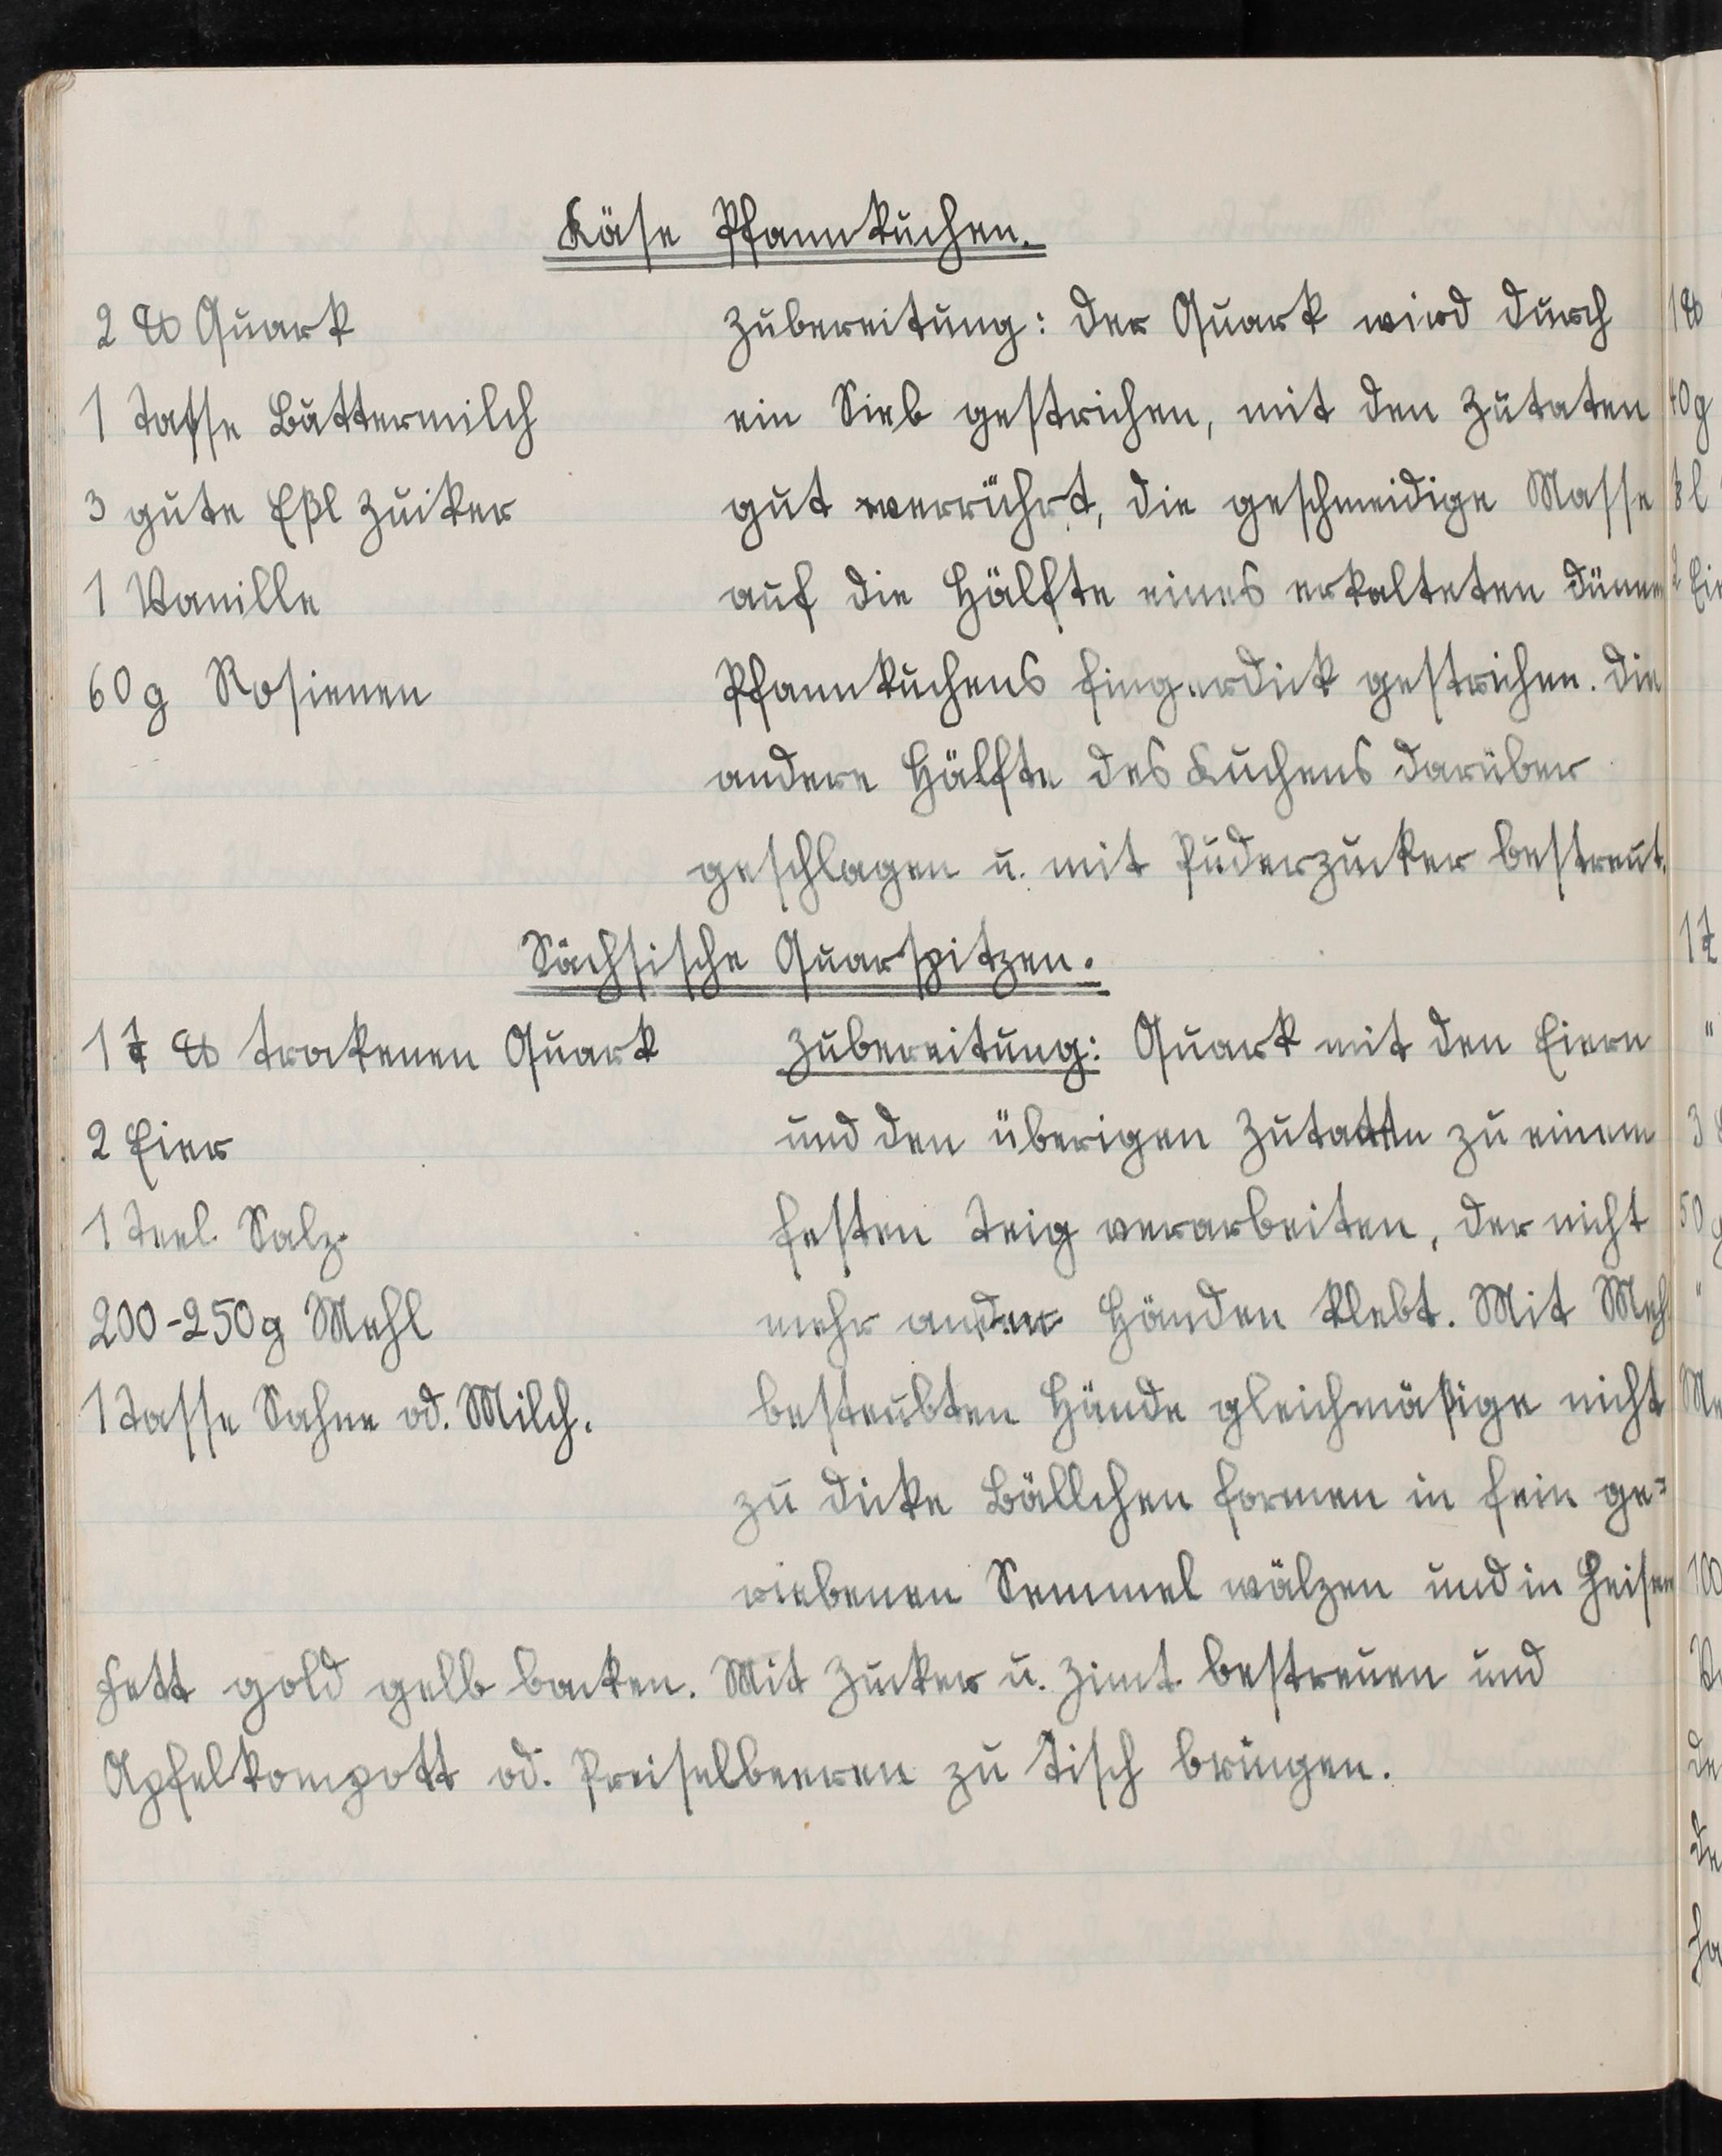 Käse Pfannkuchen.
2 ℔ Quark
1 Tasse Buttermilch
3 gute Eßl Zucker
1 Vanille
60 g Rosienen
Zubereitung: Der Quark wird durch
ein Sieb gestrichen, mit den Zutaten
gut verrührt, die geschmeidige Masse
auf die Hälfte eines erkalteten dünnen
Pfannkuchens fingerdick gestrichen. Die
andere Hälfte des Kuchens darüber
geschlagen u. mit Puderzucker bestreut.
Sächsische Quarspitzen.
1½ ℔ trokenen Quark
2 Eier
1 Teel. Salz.
200-250g Mehl
1 Tasse Sahne od. Milch.
Zubereitung: Quark mit den Eiern
und den überigen Zutatten zu einem
festen Teig verarbeiten, der nicht
mehr an den Händen klebt. Mit Mehl
besteubten Hände gleichmäßige nicht
zu dicke Bällchen formen in fein ge=
riebenen Semmel wälzen und in heisen
Fett gold gelb backen. Mit Zucker u. Zimt bestreuen und
Apfelkompott od. Preiselbeeren zu Tisch bringen.
1 ℔
40 g
⅛ l
2 Ei
1½
"
3
50 g
"
100